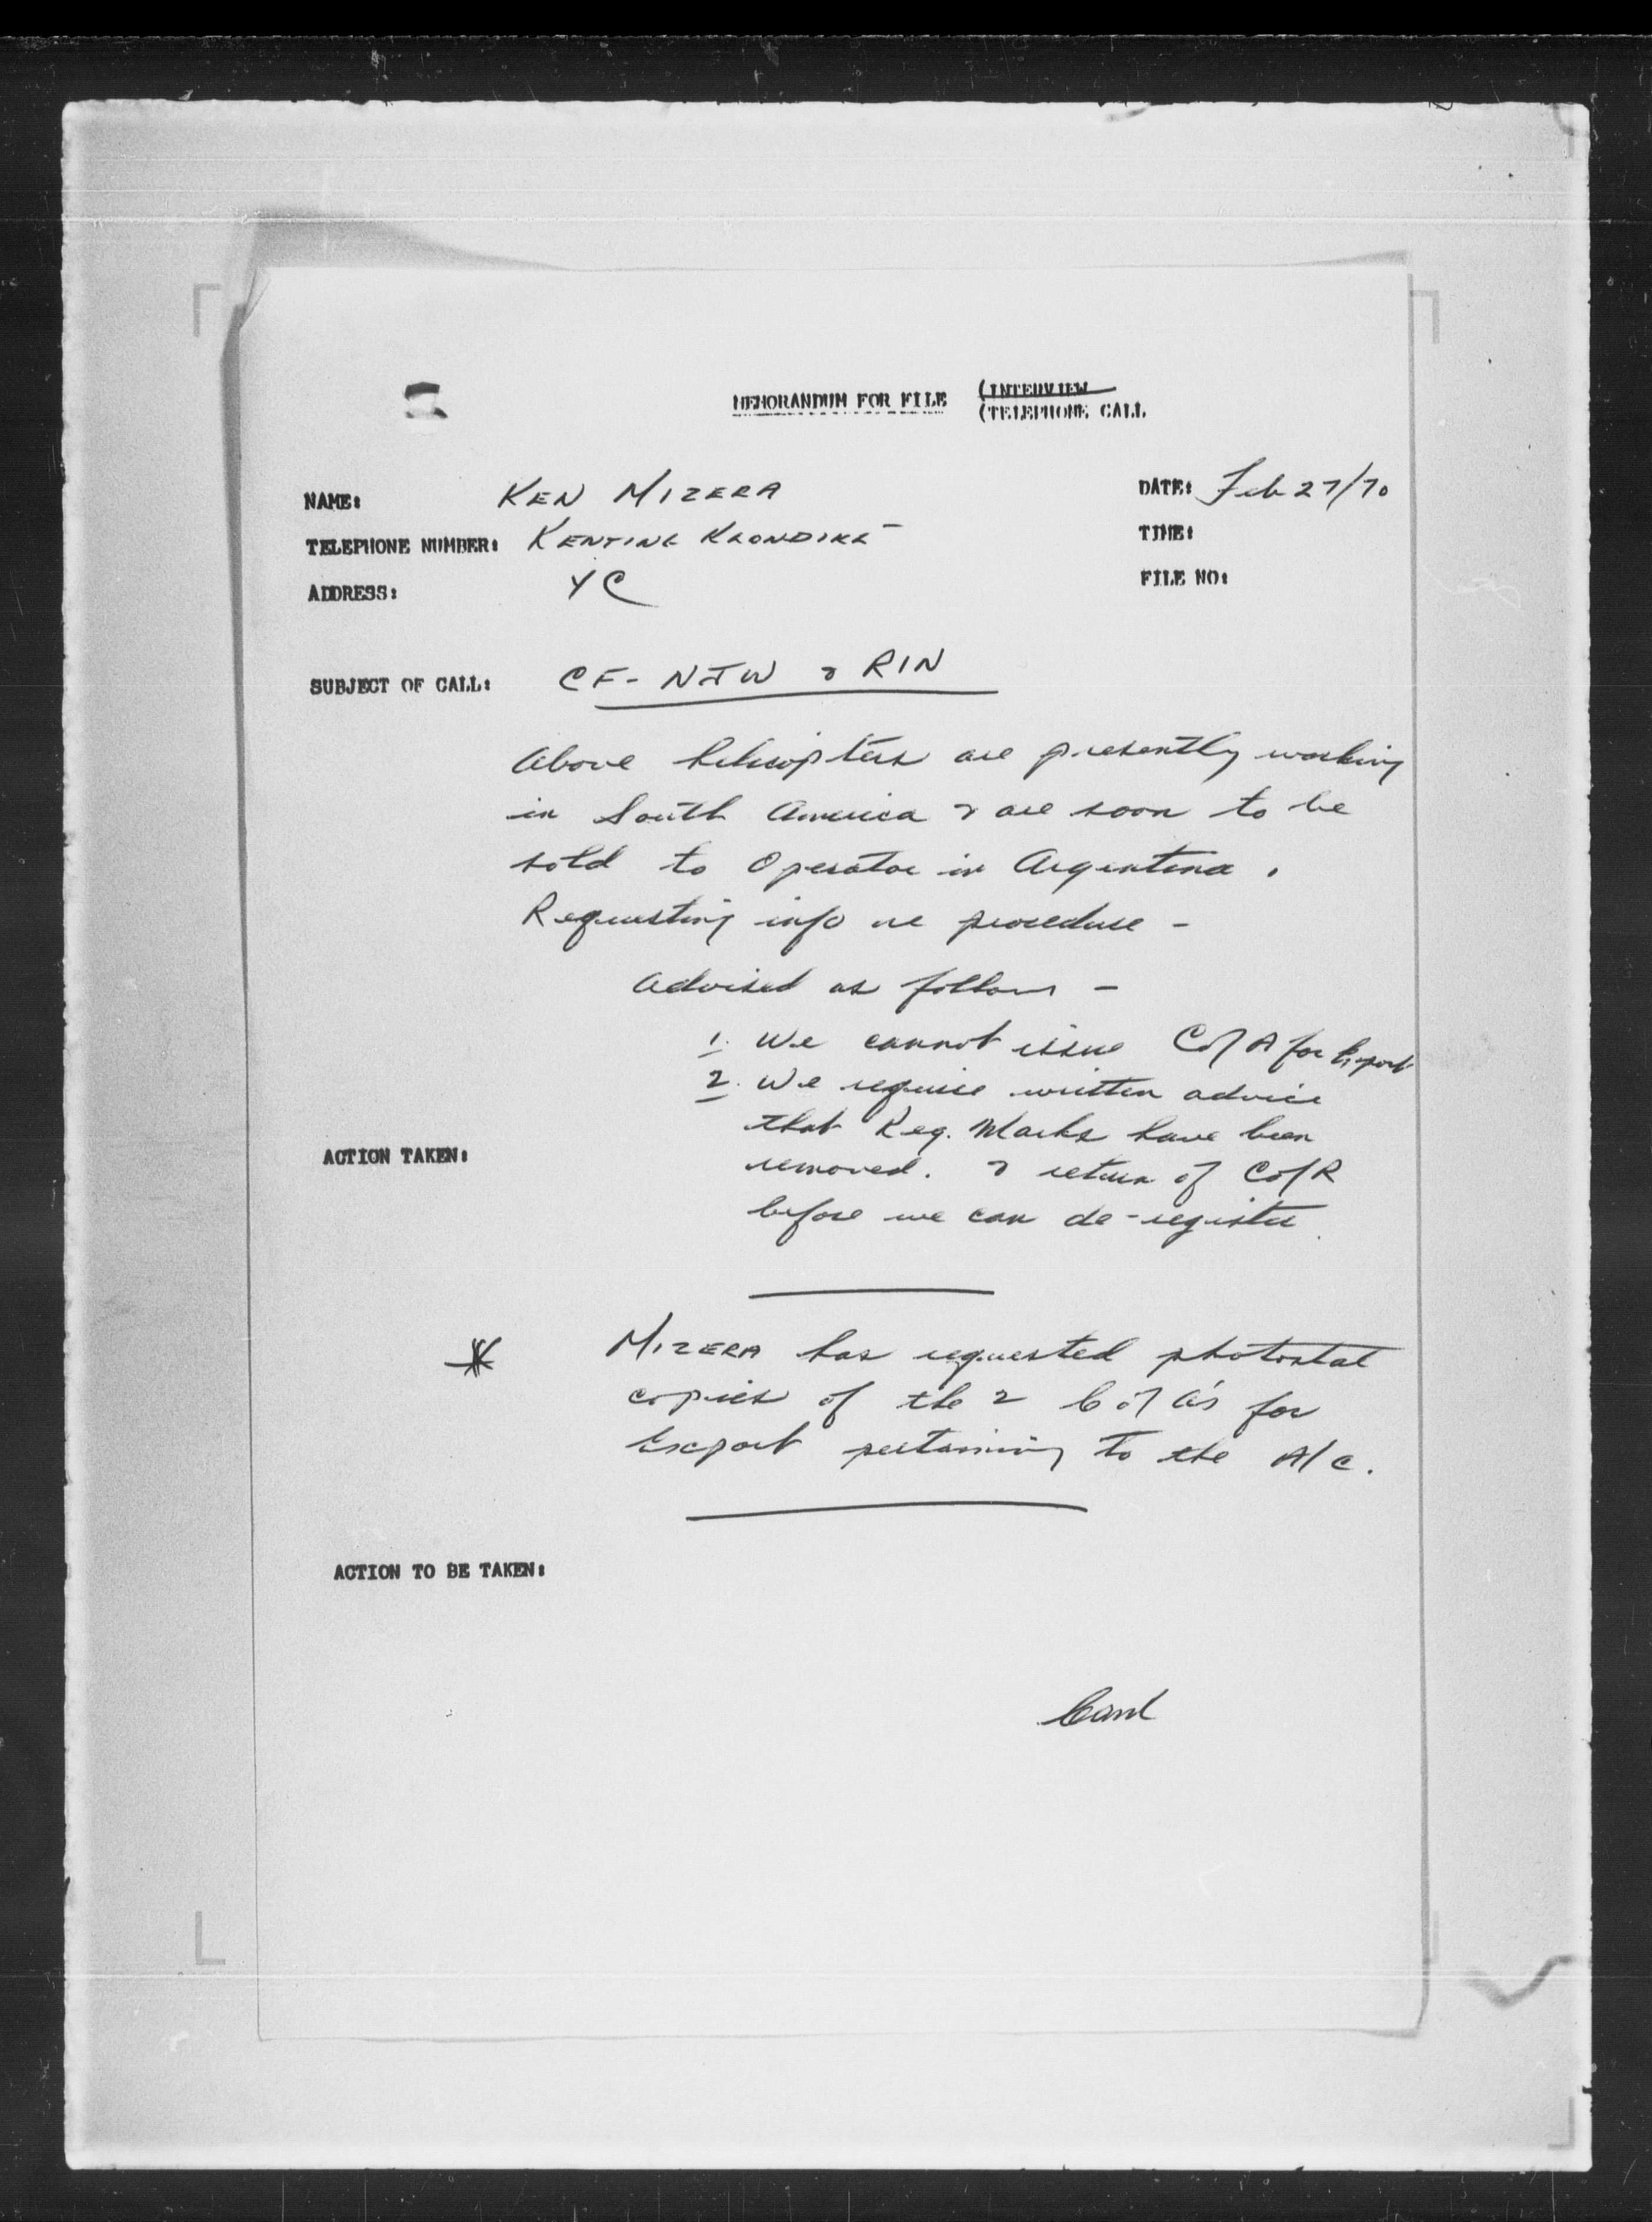 MEMORANDUM FOR FILE (INTERVIEW
(TELEPHONE CALL
NAME: KEN MIZERA DATE: Feb 27/70
TELEPHONE NUMBER: KENTING KLONDIKE TIME:
ADDRESS: YC FILE NO:
SUBJECT OF CALL: CF-NJW & RIN
Above helicopters are presently working
in South America & are soon to be
sold to Operator in Argentina.
Requesting info re procedure -
Advised as follows -
1. We cannot issue C of A for Export
2. We require written advice
that Reg. Marks have been
ACTION TAKEN: removed. & return of C of R
before we can de-register.
* MIZERA has requested photostat
copies of the 2 C of A's for
Export pertaining to the A/C.
ACTION TO BE TAKEN: